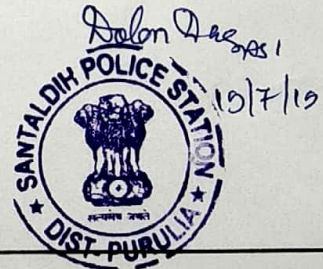 Dolon Das
19/7/19
SANTALDIH POLICE STATION
सत्यमेव जयते
★ DIST. PURULIA ★